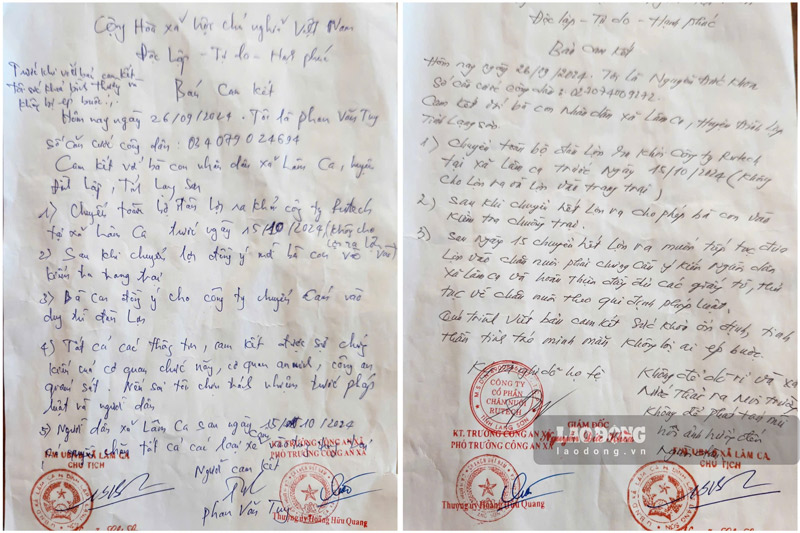 Cộng Hòa xã hội chủ nghĩa Việt Nam
Độc Lập - Tự do - Hạnh phúc
Trước khi viết bản cam kết
Tôi sức khoẻ bình thường và
không bị ép buộc
Bản Cam kết
Hôm nay ngày 26/09/2024. Tôi là phan Văn Tuy
số căn cước công dân: 024079024694
Cam kết với bà con nhân dân xã Lâm Ca, huyện
Đình Lập, Tỉnh Lạng Sơn
1) Chuyển toàn bộ đàn lợn ra khỏi công ty Rutech
tại xã Lâm Ca trước ngày 15/10/2024 (không cho
lợn ra lợn vào)
2) Sau khi chuyển lợn đồng ý mời bà con vào
kiểm tra trang trại
3) Bà con đồng ý cho công ty chuyển cám vào
duy trì đàn lợn
4) Tất cả các thông tin, cam kết được sự chứng
kiến của cơ quan chức năng, cơ quan an ninh, công an
giám sát. Nếu sai tôi chịu trách nhiệm trước pháp
luật và người dân
5) Người dân xã Lâm Ca sau ngày 15/10/2024
tất cả các loại xe
TM UBND XÃ LÂM CA
CHỦ TỊCH
KT. TRƯỞNG CÔNG AN XÃ
PHÓ TRƯỞNG CÔNG AN XÃ
Người cam kết
phan Văn Tuy
Thượng úy Hoàng Hữu Quang
Độc lập - Tự do - Hạnh phúc
Bản cam kết
Hôm nay ngày 26/9/2024. Tôi là Nguyễn Đức Khoa
Số căn cước công dân: 023074009172
Cam kết với bà con Nhân dân xã Lâm Ca, Huyện Đình Lập
Tỉnh Lạng Sơn.
1) Chuyển toàn bộ đàn Lợn ra khỏi Công ty Rutech
tại xã Lâm ca trước ngày 15/10/2024 (Không
cho Lợn ra và Lợn vào trang trại)
2) Sau khi chuyển hết Lợn ra cho phép bà con vào
Kiểm tra chuồng trại.
3) Sau Ngày 15 chuyển hết Lợn ra muốn tiếp tục đưa
Lợn vào chăn nuôi phải chưng Cầu ý kiến Người dân
xã Lâm Ca và hoàn thiện đầy đủ các giấy tờ, thủ
tục về chăn nuôi theo qui định pháp luật.
Quá trình viết bản cam kết sức khỏe ổn định, tinh
thần tỉnh táo minh mẫn không bị ai ép buộc.
ghi rõ họ tê
Không để rò rỉ và xả
Nước thải ra Môi trường
Không để phát tán mùi
hôi ảnh hưởng đến
CÔNG TY
CỔ PHẦN
CHĂN NUÔI
RUTECH
GIÁM ĐỐC
KT. TRƯỞNG CÔNG AN XÃ
PHÓ TRƯỞNG CÔNG AN XÃ
LAODONG
laodong.vn
UBND XÃ LÂM CA
CHỦ TỊCH
Thượng úy Hoàng Hữu Quang